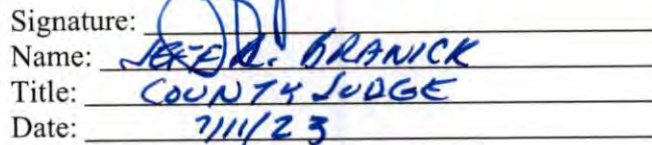 Signature:
Name: JEFF R. BRANICK
Title: COUNTY JUDGE
Date: 7/11/23